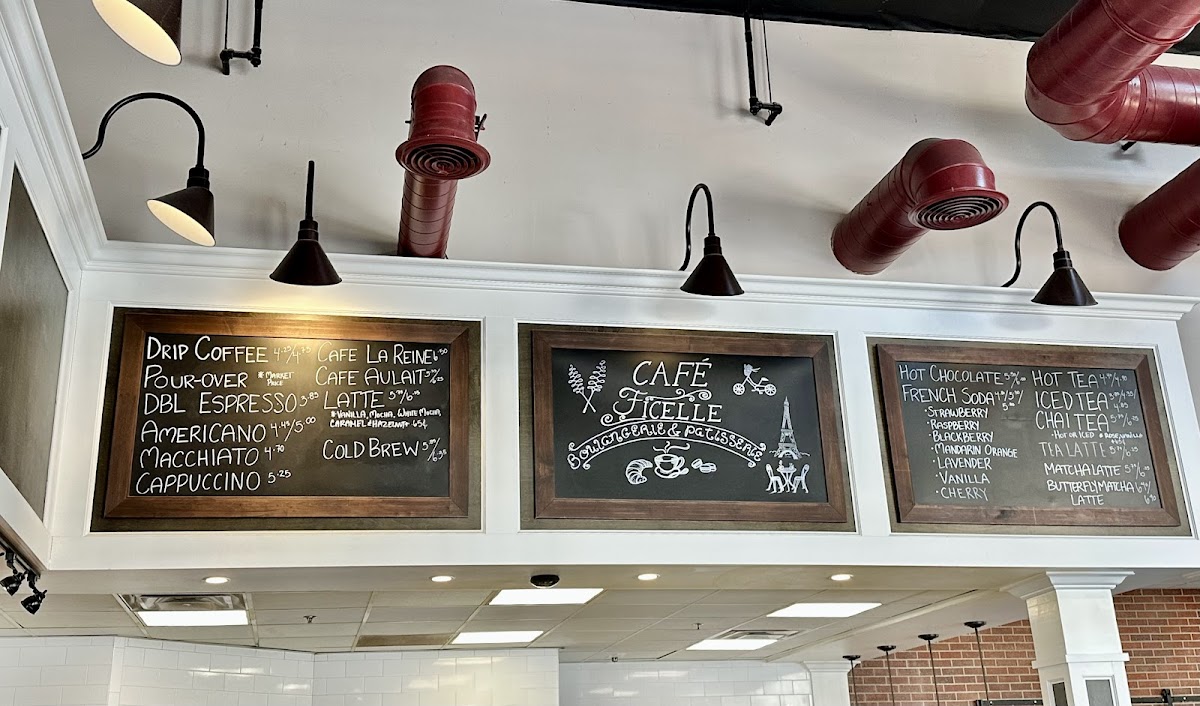 DRIP COFFEE 4.25/4.75
POUR-OVER *MARKET PRICE
DBL ESPRESSO 3.85
AMERICANO 4.45/5.00
MACCHIATO 4.70
CAPPUCCINO 5.25
CAFE LA REINE 6.50
CAFE AULAIT
LATTE
*VANILLA, MOCHA, WHITE MOCHA,
CARAMEL & HAZELNUT 65¢
COLD BREW
CAFÉ
FICELLE
BOULANGERIE & PATISSERIE
HOT CHOCOLATE
FRENCH SODA
•STRAWBERRY
•RASPBERRY
•BLACKBERRY
•MANDARIN ORANGE
•LAVENDER
•VANILLA
•CHERRY
HOT TEA
ICED TEA
CHAI TEA
•HOT OR ICED
TEA LATTE
MATCHA LATTE
BUTTERFLY MATCHA
LATTE